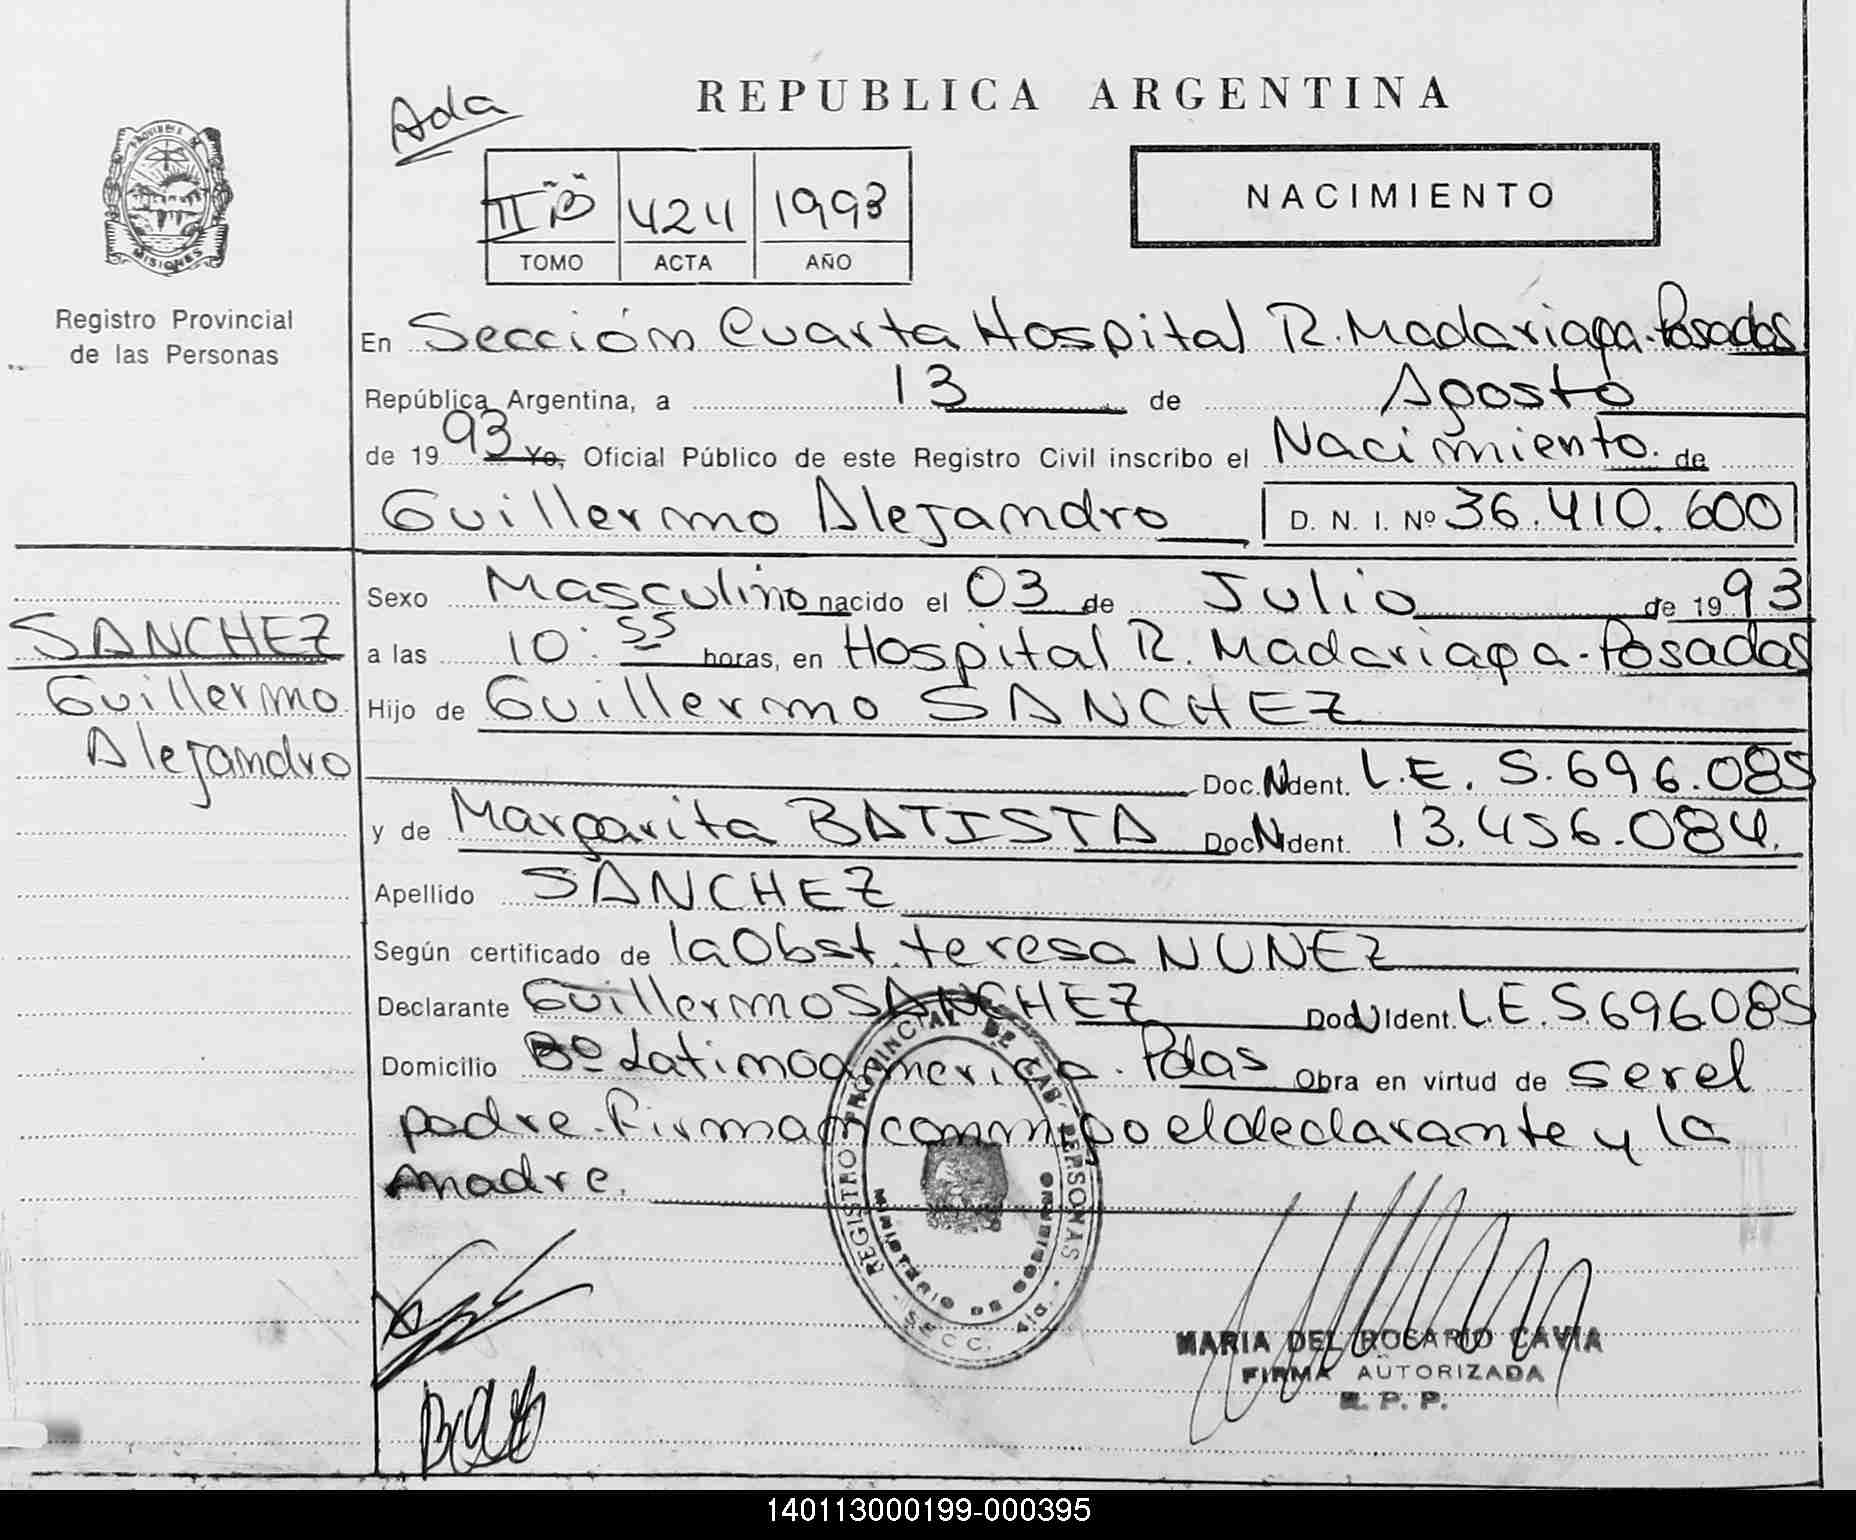 Ada
REPUBLICA ARGENTINA
PROVINCIA DE
MISIONES
II "B" 424 1993
TOMO ACTA AÑO
NACIMIENTO
Registro Provincial
de las Personas
En Sección Cuarta Hospital R. Madariaga. Posadas
República Argentina, a 13 de Agosto
de 1993 Yo, Oficial Público de este Registro Civil inscribo el Nacimiento. de
Guillermo Alejandro D. N. I. Nº 36.410.600
Sexo Masculino nacido el 03 de Julio de 1993
SANCHEZ
Guillermo
Alejandro
a las 10:55 horas, en Hospital R. Madariaga-Posadas
Hijo de Guillermo SANCHEZ
Doc. N Ident. L.E. 5.696.085
y de Margarita BATISTA Doc N Ident. 13.456.084.
Apellido SANCHEZ
Según certificado de la Obst. teresa NUNEZ
Declarante Guillermo SANCHEZ Doc N Ident. L.E. 5.696.085
Domicilio Bº Latinoamerica. Pdas Obra en virtud de ser el
padre. Firman conmigo el declarante y la
madre.
REGISTRO PROVINCIAL DE LAS PERSONAS
MINISTERIO DE GOBIERNO
SECC. 4ta.
MARIA DEL ROSARIO CAVIA
FIRMA AUTORIZADA
R. P. P.
140113000199-000395